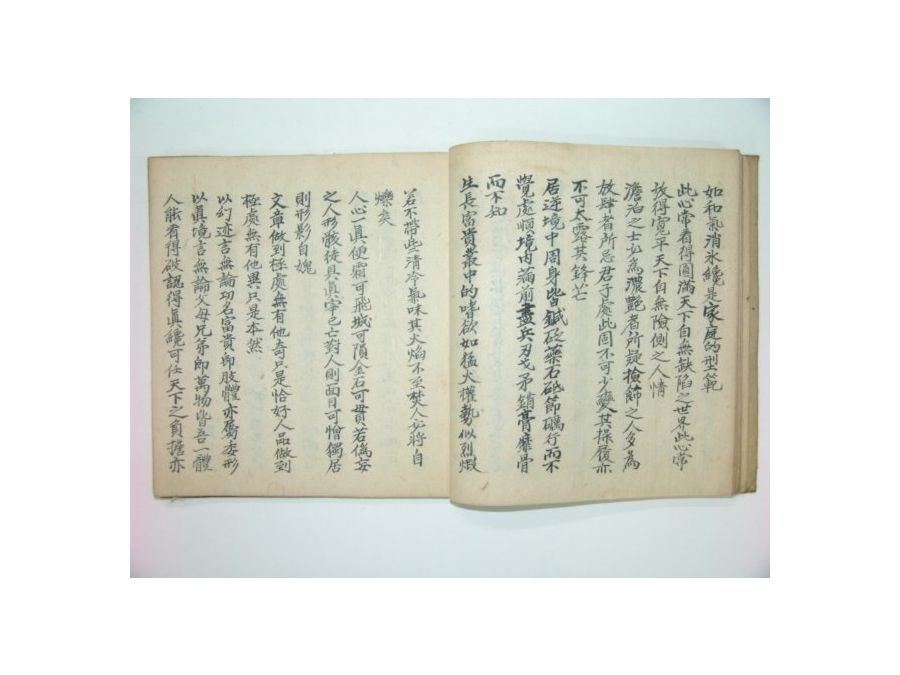 如和氣消氷纔是家庭的型範
此心常看得圓滿天下自無缺陷之世界此心常
放得寬平天下自無險側之人情
澹泊之士必為濃艶者所疑撿飭之人多為
放肆者所忌君子處此固不可少變其操履亦
不可太露其鋒芒
居逆境中周身皆鍼砭藥石砥節礪行而不
覺處順境內滿前盡兵刃戈矛銷膏靡骨
而不知
生長富貴叢中的嗜欲如猛火權勢似烈煅
若不帶些清冷氣味其火焰不至焚人必將自
爍矣
人心一眞便霜可飛城可隕金石可貫若僞妄
之人形骸徒具眞宰已亡對人則面目可憎獨居
則形影自媿
文章做到極處無有他奇只是恰好人品做到
極處無有他異只是本然
以幻迹言無論功名富貴即肢體亦屬委形
以眞境言無論父母兄弟即萬物皆吾一體
人能看得破認得眞纔可任天下之負擔亦